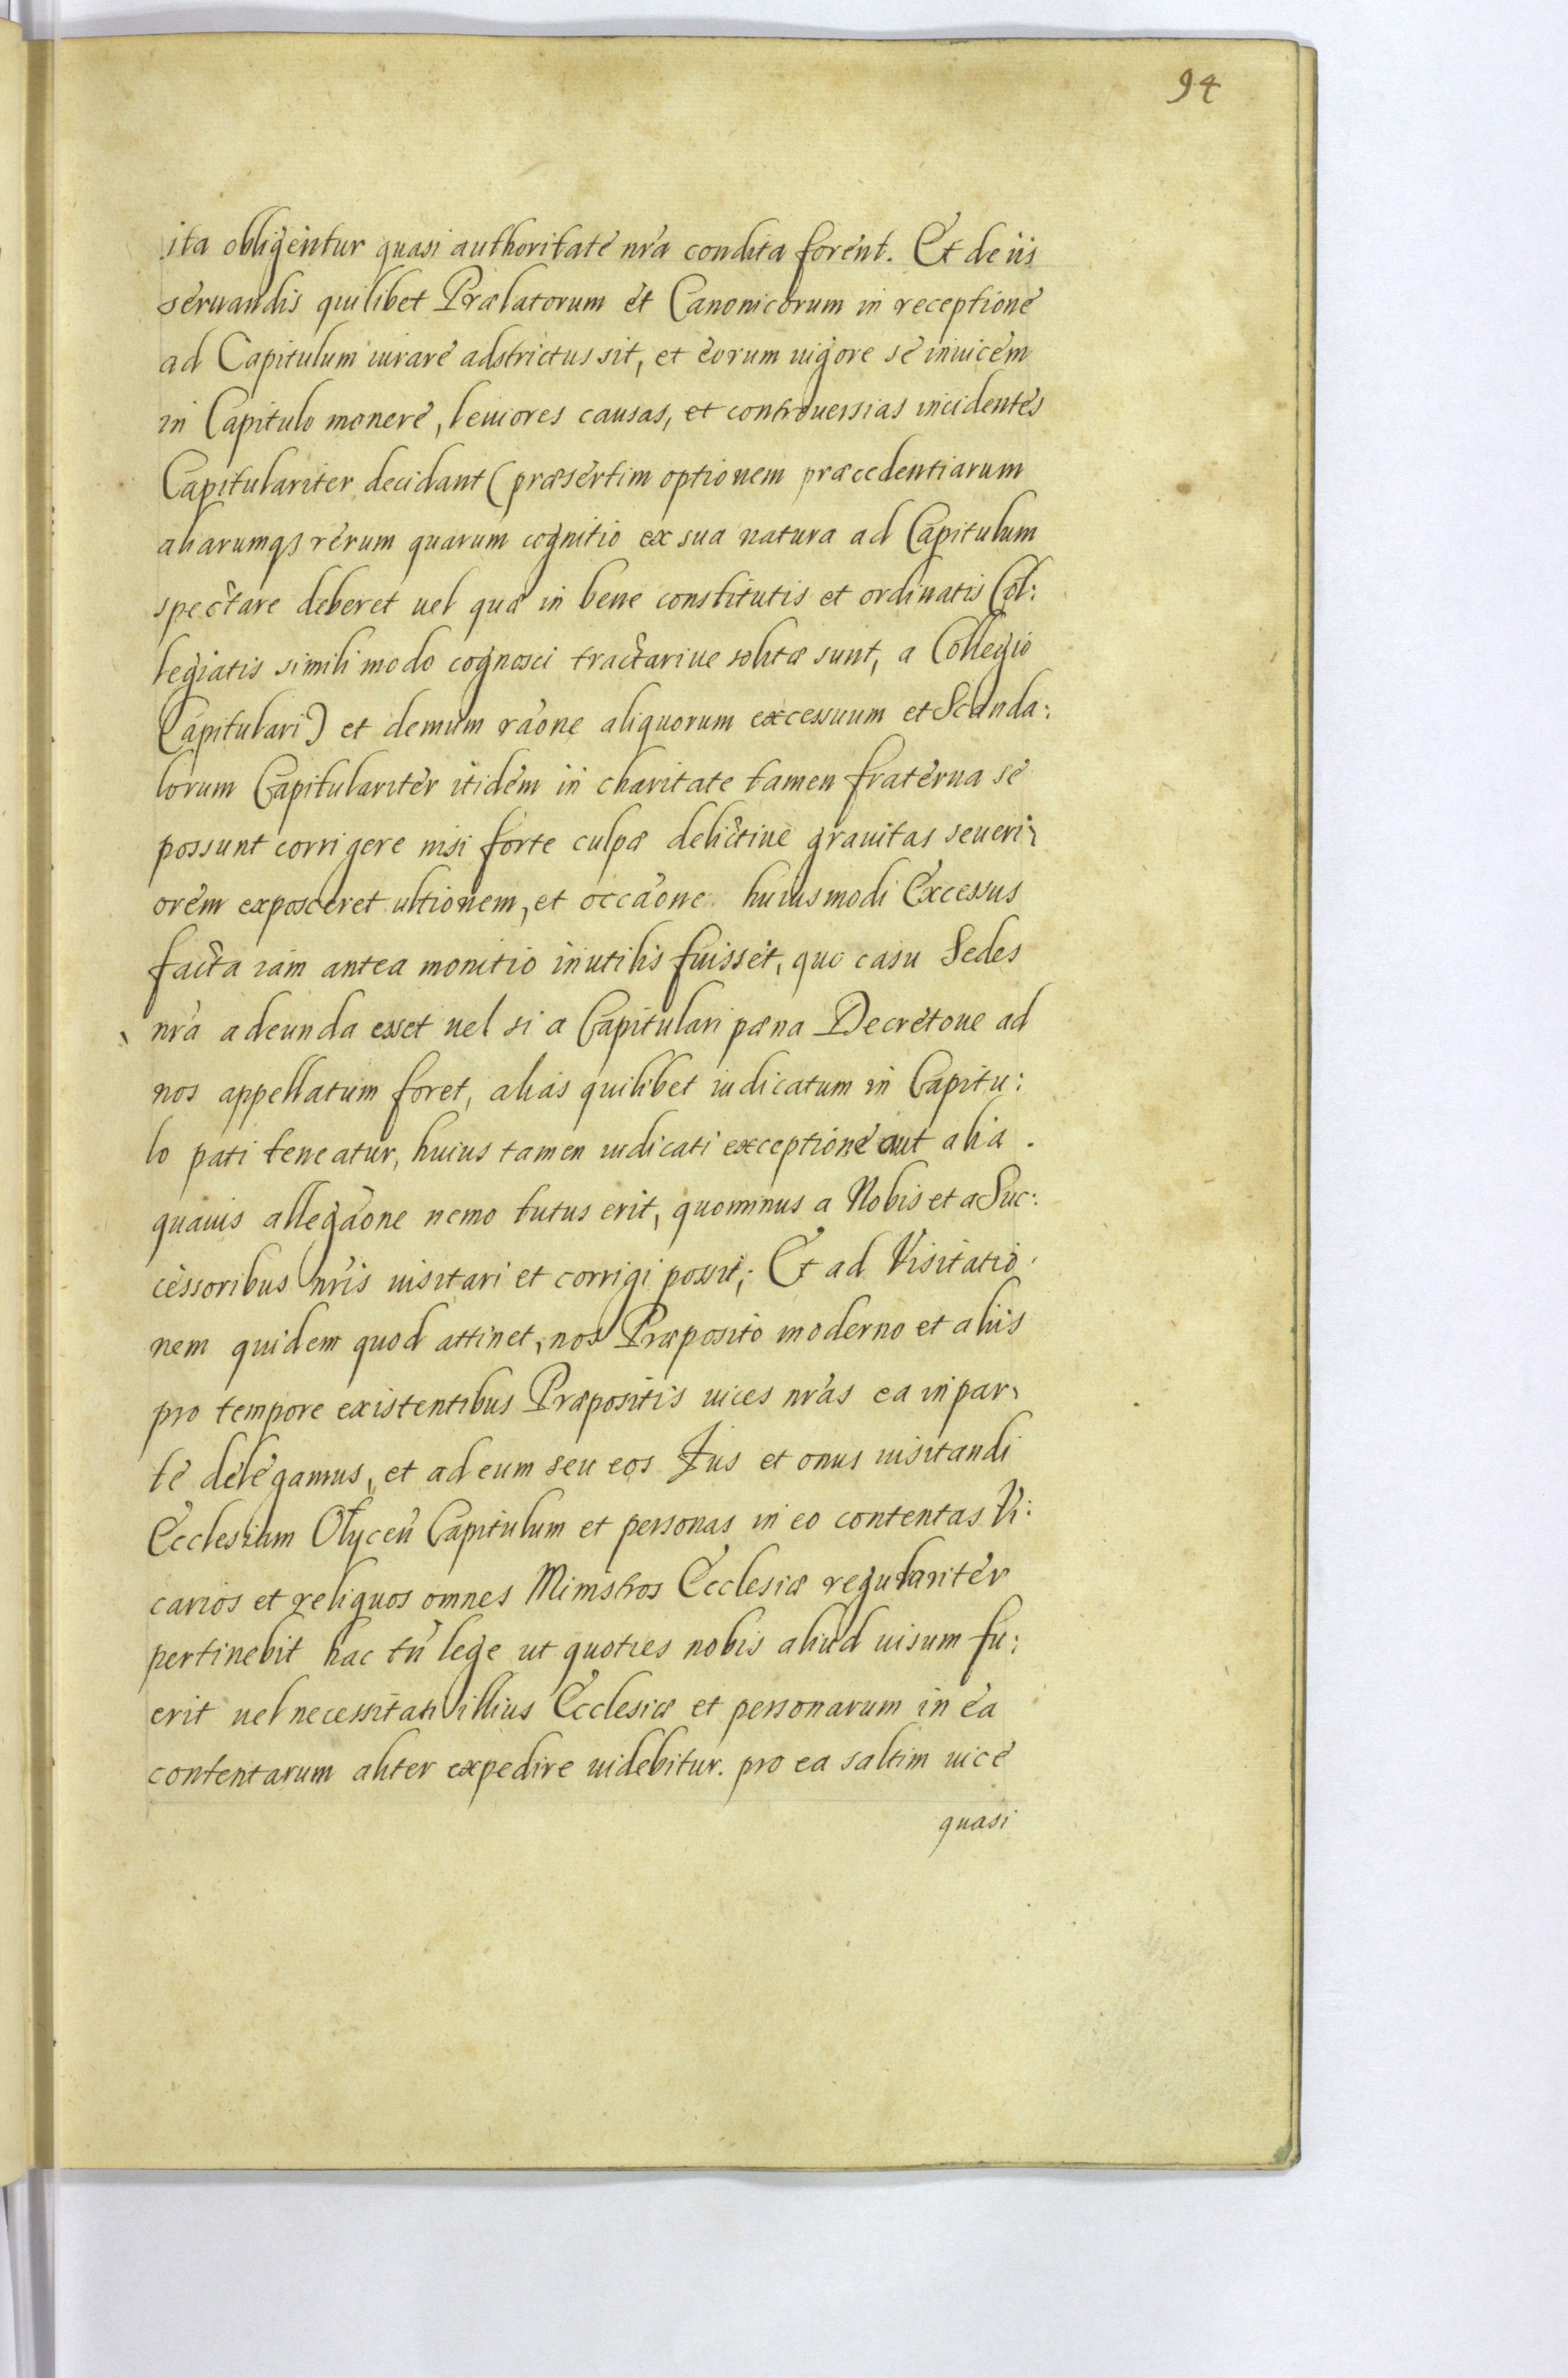 94
ita obligentur quasi authoritate nr̃a condita forent. Et de iis
seruandis quilibet Prælatorum et Canonicorum in receptione
ad Capitulum iurare adstrictus sit, et eorum uigore se inuicem
in Capitulo monere, leuiores causas, et controuersias incidentes
Capitulariter decidant (præsertim optionem præcedentiarum
aliarumqз rerum quarum cognitio ex sua natura ad Capitulum
spectare deberet uel quæ in bene constitutis et ordinatis Col:
legiatis simili modo cognosci tractariue solitæ sunt, a Collegio
Capitulari) et demum rãone aliquorum excessuum et Scanda:
lorum Capitulariter itidem in charitate tamen fraterna se
possunt corrigere nisi forte culpæ delictiue grauitas seueri
orem exposceret ultionem, et occãone huiusmodi Excessus
facta iam antea monitio inutilis fuisset, quo casu Sedes
nr̃a adeunda esset uel si a Capitulari pæna Decretoue ad
nos appellatum foret, alias quilibet iudicatum in Capitu:
lo pati teneatur, huius tamen iudicati exceptione aut alia
quauis allegãone nemo tutus erit, quominus a Nobis et a Suc:
cessoribus nr̃is uisitari et corrigi possit; Et ad Visitatio
nem quidem quod attinet, nos Præposito moderno et aliis
pro tempore existentibus Præpositis uices nr̃as ea in par
te delegamus, et ad eum seu eos Jus et onus uisitandi
Ecclesiam Olyceñ Capitulum et personas in eo contentas Vi:
carios et reliquos omnes Ministros Ecclesiæ regulariter
pertinebit hac tñ lege ut quoties nobis aliud uisum fu:
erit uel necessitati illius Ecclesiæ et personarum in ea
contentarum aliter expedire uidebitur. pro ea saltim uice
quasi